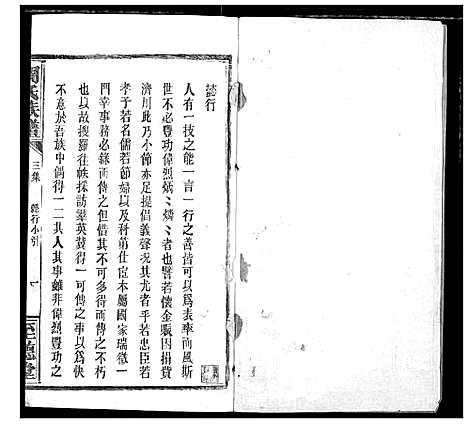 懿行
人有一技之能一言一行之善皆可以爲表率而風斯
世不必豐功偉烈炳炳燐燐者也譬若懷金賑因捐貲
濟川此乃小節亦足提倡義聲况其尤者乎若忠臣若
孝子若名儒若節婦以及科第仕宦本屬國家瑞徵一
門幸事務必錄而傳之但惜其不可多得而傳之不朽
也以故搜羅往帙採訪羣英冀得一可傳之事以爲快
不意於吾族中偶得一二其人其事雖非偉烈豐功之
氏族譜
三集
懿行小引
一
至德堂